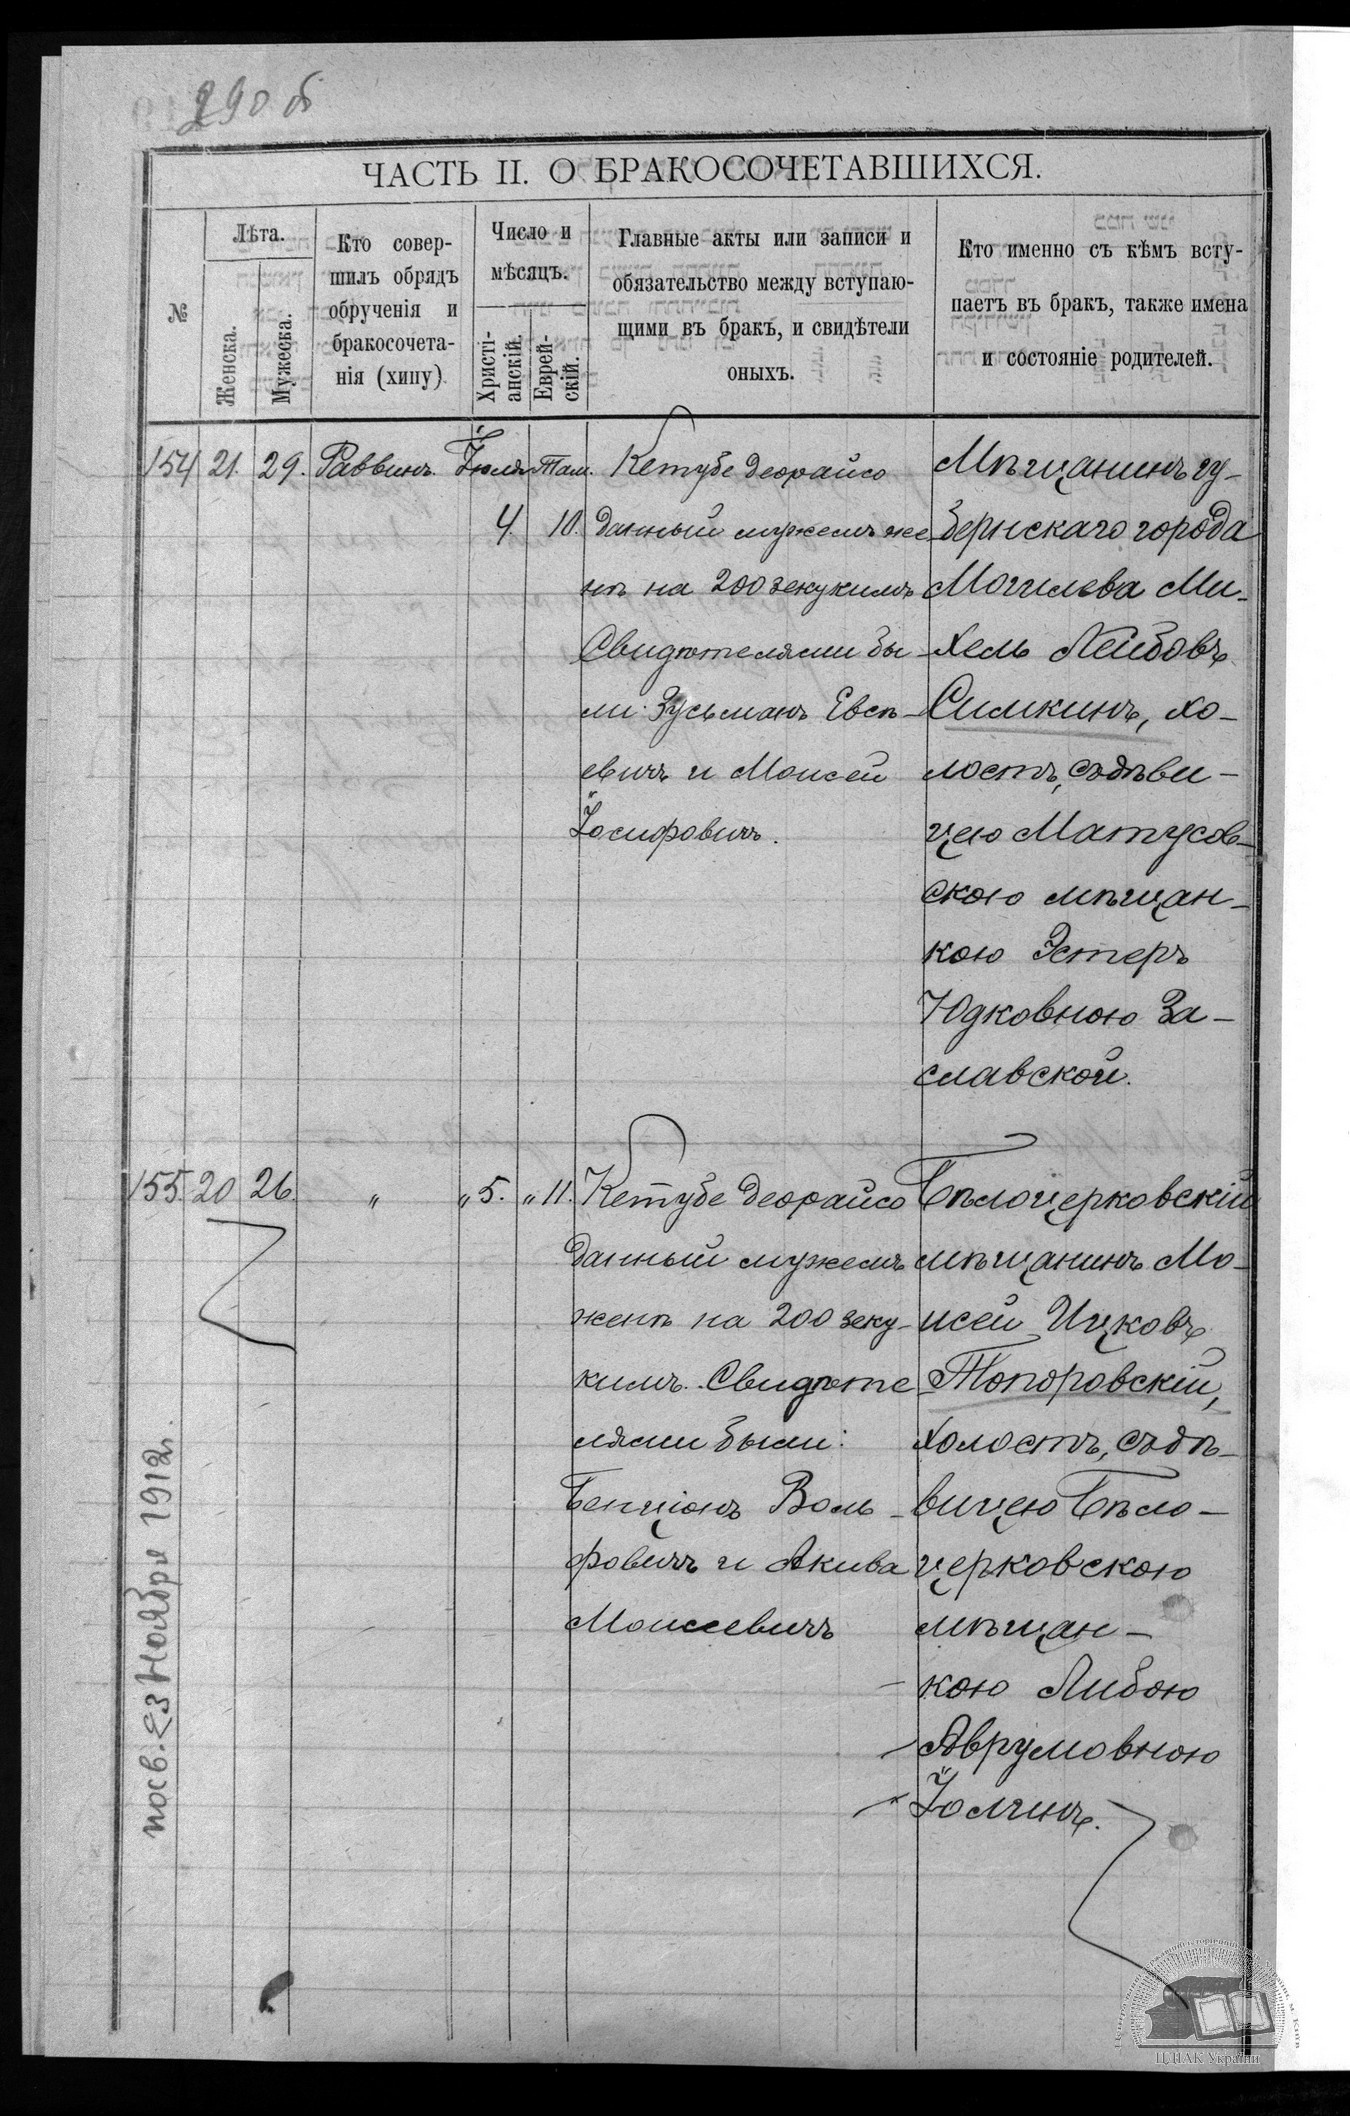 290 об
ЧАСТЬ II. О БРАКОСОЧЕТАВШИХСЯ.
№
Лѣта.
Женска.
Мужеска.
Кто совер-
шилъ обрядъ
обрученія и
бракосочета-
нія (хипу)
Число и
мѣсяцъ.
Христі-
анскій.
Еврей-
скій.
Главные акты или записи и
обязательство между вступаю-
щими въ бракъ, и свидѣтели
оныхъ.
Кто именно съ кѣмъ всту-
паетъ въ бракъ, также имена
и состояніе родителей.
154 21. 29. Раввинъ. Іюля Там.
4. 10.
Кетубе деорайсо
данный мужемъ же
нѣ на 200 зекукимъ
Свидѣтелями бы
ли: Зусьманъ Евсѣ-
евичъ и Моисей
Іосифовичъ.
Мѣщанинъ гу-
бернскаго города
Могилева Ми-
хель Лейбовъ
Симкинъ, хо-
лостъ, съ дѣви-
цею Матусов-
скою мѣщан-
кою Эстеръ
Юдковною За-
славской.
155 20 26. " " 5. " 11.
Кетубе деорайсо
данный мужемъ
женѣ на 200 зеку-
кимъ. Свидѣте
лями были:
Бенціонъ Воль-
фовичъ и Акива
Моисеевичъ
Бѣлоцерковскій
мѣщанинъ Мо-
исей Ицковъ
Топоровскій,
холостъ, съ дѣ-
вицею Бѣло-
церковскою
мѣщан-
кою Либою
Аврумовною
Іолчинъ.
посв. 23 Ноября 1912г.
ЦДІАК України